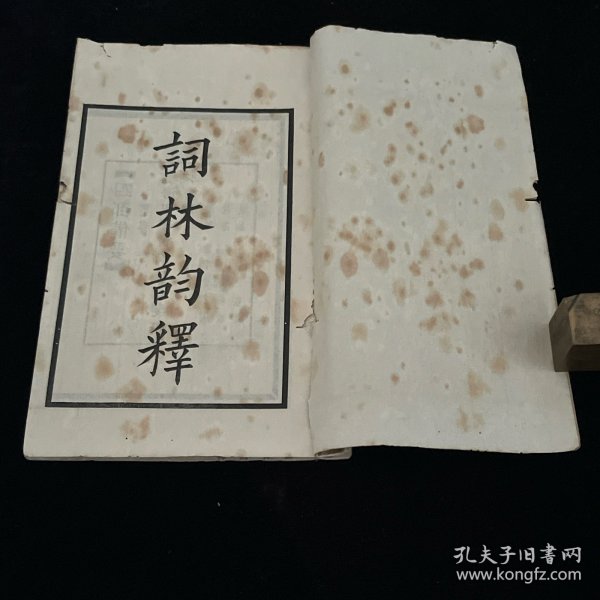 詞林韵釋
孔夫子旧书网
www.kongfz.com